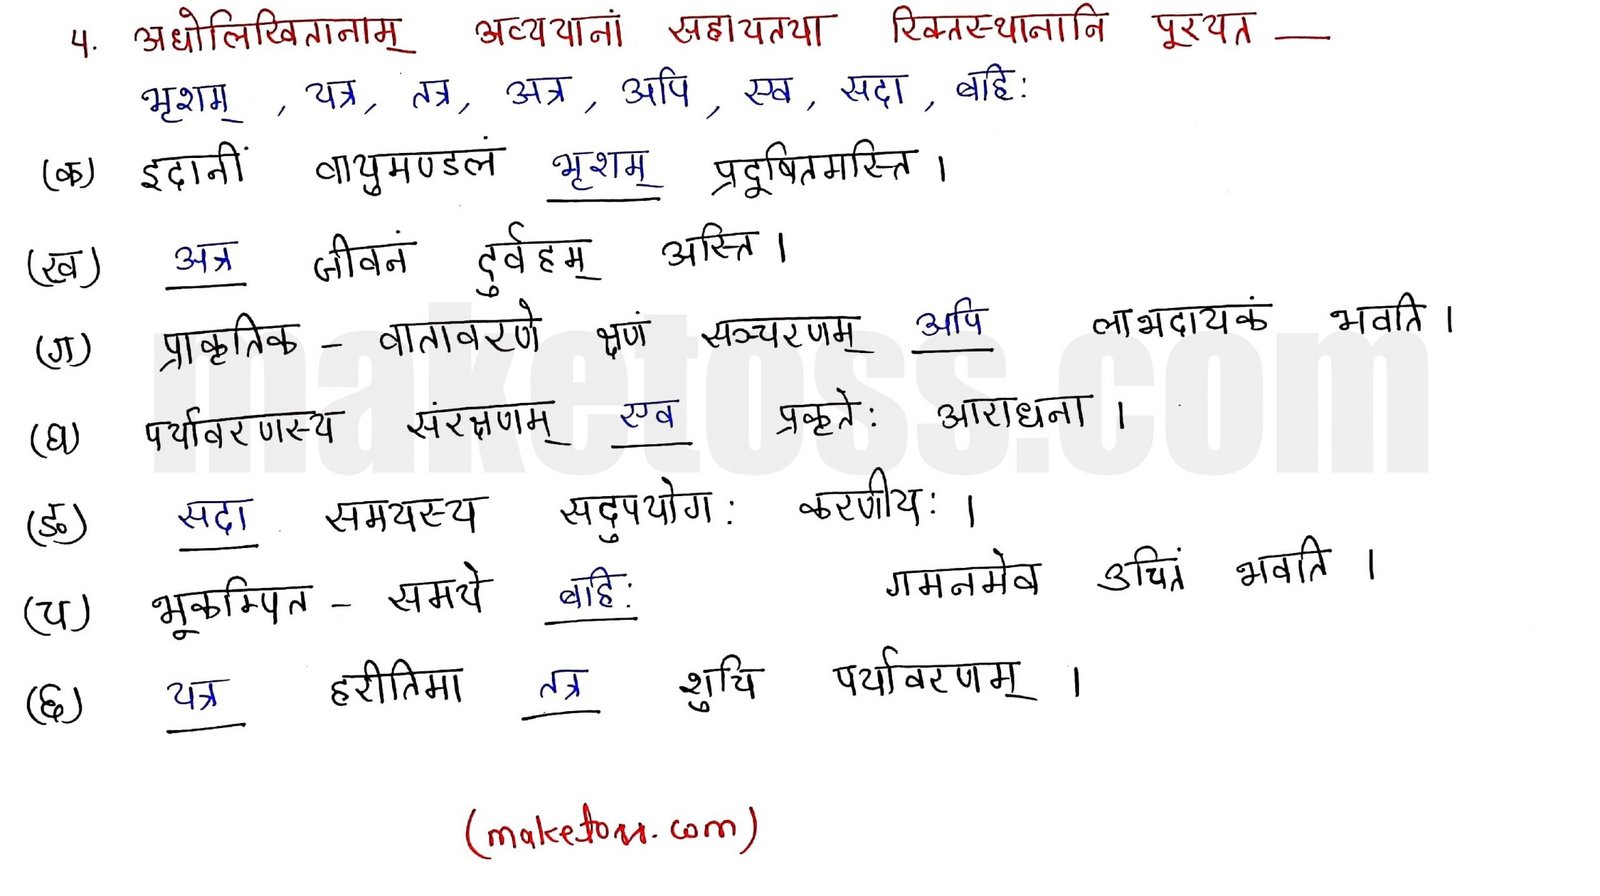 4. अधोलिखितानाम् अव्ययानां सहायतया रिक्तस्थानानि पूरयत —
भृशम् , यत्र, तत्र, अत्र, अपि, एव, सदा, बहिः
(क) इदानीं वायुमण्डलं भृशम् प्रदूषितमस्ति।
(ख) अत्र जीवनं दुर्वहम् अस्ति।
(ग) प्राकृतिक - वातावरणे क्षणं सञ्चरणम् अपि लाभदायकं भवति।
(घ) पर्यावरणस्य संरक्षणम् एव प्रकृतेः आराधना।
(ङ) सदा समयस्य सदुपयोगः करणीयः।
(च) भूकम्पित - समये बहिः गमनमेव उचितं भवति।
(छ) यत्र हरीतिमा तत्र शुचि पर्यावरणम्।
maketoss.com
(maketoss.com)